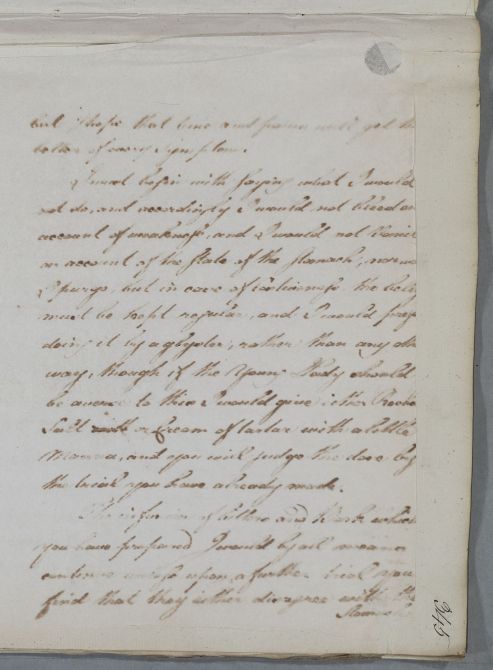 but I hope that time and  will get the
better of every symptom.
I must begin with saying what I would
not do, and accordingly I would not bleed on
account of weakness, and I would not Vomit
on account of the State of the Stomach, nor
I purge, but in case of costiveness the belly
must be kept regular, and I would
doing it by a glyster, rather than any oth
way, though if the Young Lady should
be averse to this I would give either Roche
Salt or Cream of tartar with a little
Manna, and you will judge the dose by
the trial you have already made.
The infusion of bitters and bark which
you have prepared I would by all means
continue unless upon a further trial you
find that they either disagree with the
Stomach
346